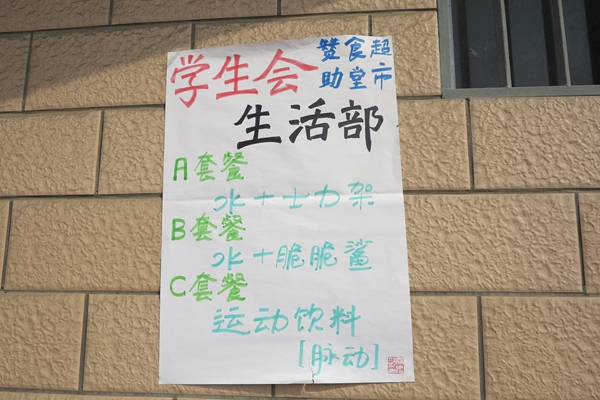 学生会
超市
食堂
赞助
生活部
A套餐
水+士力架
B套餐
水+脆脆鲨
C套餐
运动饮料
[脉动]